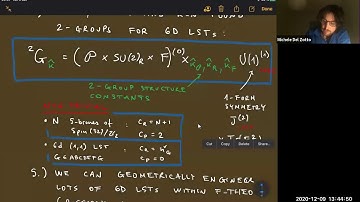 2-GROUPS FOR 6D LSTs:
²G_k̂ = (P × SU(2)_R × F)^(0) ×_{k̂_P, k̂_R, k̂_F} U(1)^(1)
2-GROUP STRUCTURE
CONSTANTS
1-FORM
SYMMETRY
J^(2)
N 5-branes of : C_R = N+1
Spin(32)/Z_2 C_P = 2
6d (1,1) LST :
G ∈ ABCDEFG C_P = 0
5.) WE CAN GEOMETRICALLY ENGINEER
LOTS OF 6D LSTs WITHIN F-THEO
Michele Del Zotto
2020-12-09 13:44:50